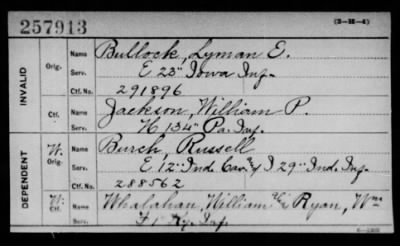 257913
(3-H-4)
INVALID
Orig.
Name Bullock, Lyman E.
Serv. E 23" Iowa Inf.
Ctf. No. 291896
Ctf.
Name Jackson, William P.
Serv. K 134" Pa. Inf.
DEPENDENT
W. Orig.
Name Burch, Russell
Serv. E 12" Ind. Cav. & I 29" Ind. Inf.
Ctf. No. 288562
W. Ctf.
Name Whalahan, William Ryan, Wm
Serv. F 1 Ky. Inf.